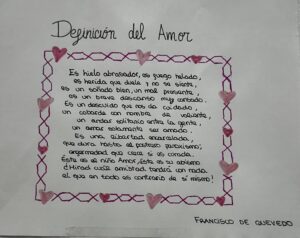 Definición del Amor
Es hielo abrasador, es fuego helado,
es herida que duele y no se siente,
es un soñado bien, un mal presente,
es un breve descanso muy cansado.
Es un descuido que nos da cuidado,
un cobarde con nombre de valiente,
un andar solitario entre la gente,
un amar solamente ser amado.
Es una libertad encarcelada,
que dura hasta el postrero paroxismo;
enfermedad que crece si es curada.
Este es el niño Amor, éste es su abismo.
¡Mirad cuál amistad tendrá con nada
el que en todo es contrario de sí mismo!
FRANCISCO DE QUEVEDO